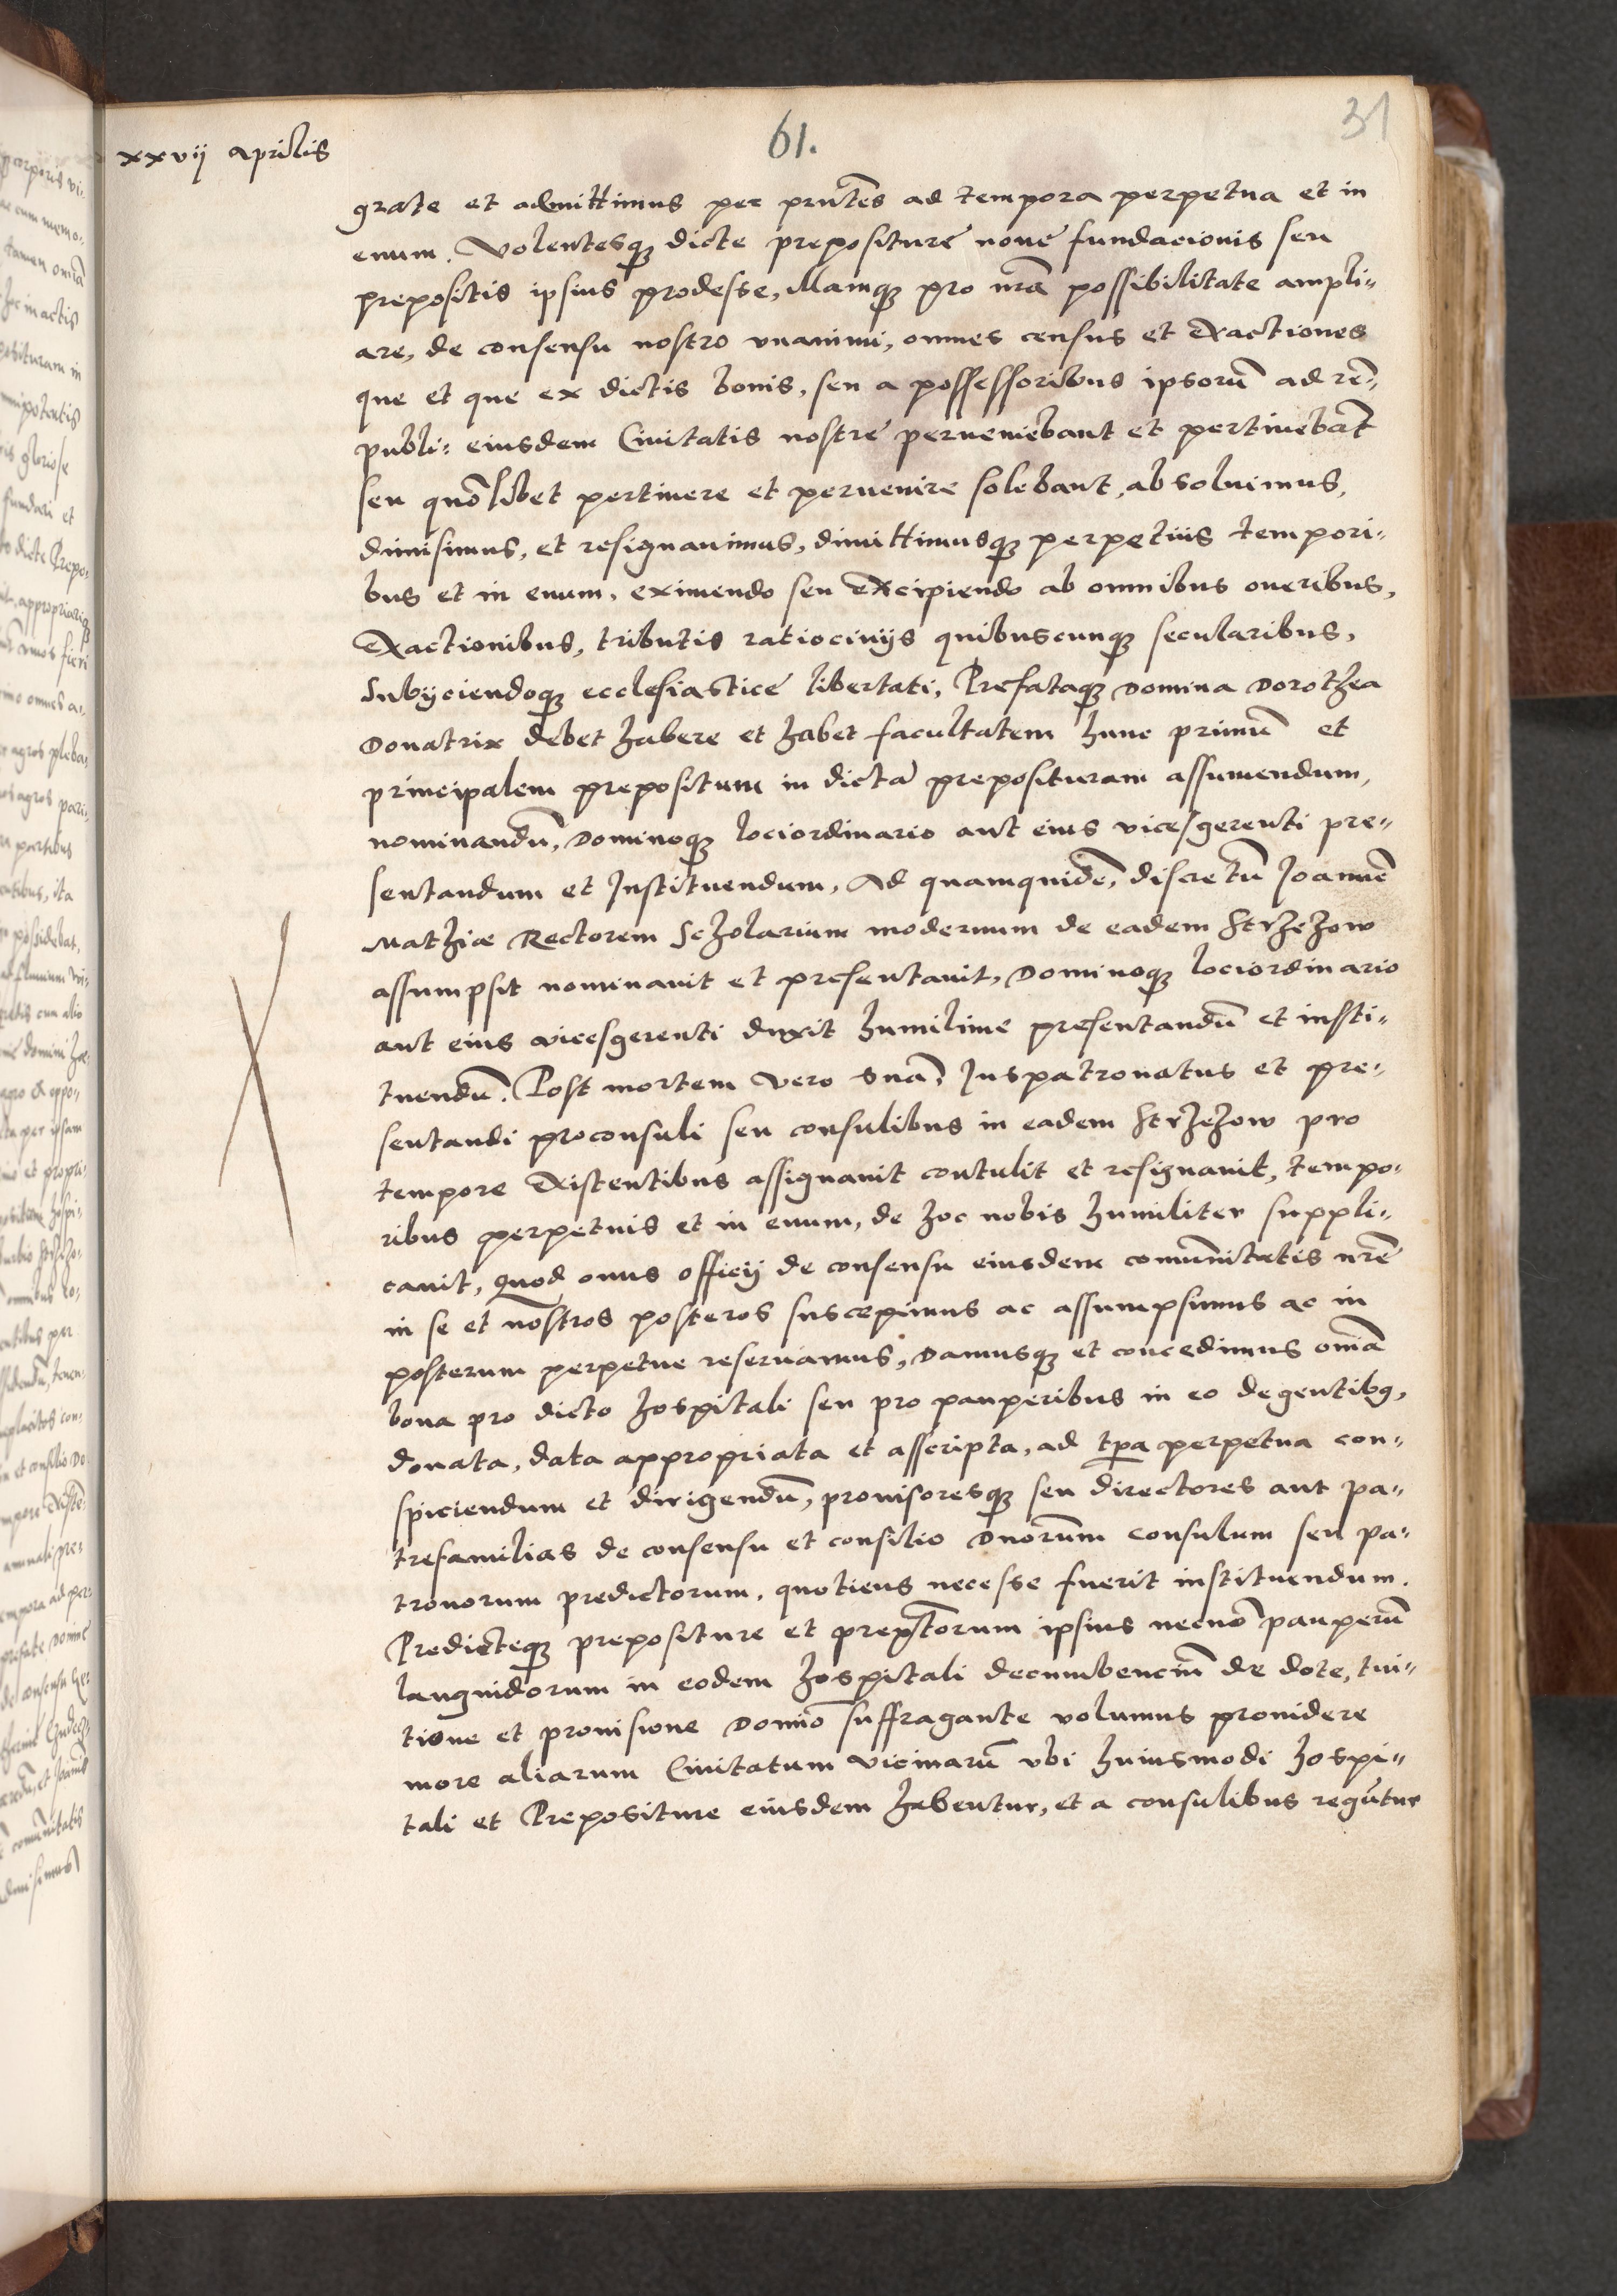 61.
31
xxvij aprilis
grate et admittimus per pn̄tes ad tempora perpetua et in
euum. Volentesq₃ dicte prepositure noue fundacionis seu
prepositis ipsius prodesse, Illamq₃ pro nr̄a possibilitate ampli-
are, de consensu nostro vnanimi, omnes census et exactiones
que et que ex dictis bonis, seu a possessoribus ipsorū ad rē-
publi: eiusdem Ciuitatis nostre perueniebant et pertinebāt
seu quōlibet pertinere et peruenire solebant, absoluimus,
dimisimus, et resignauimus, dimittimusq₃ perpetuis tempori-
bus et in euum, eximendo seu excipiendo ab omnibus oneribus,
exactionibus, tributis ratiocinijs quibuscunq₃ secularibus,
Subijciendoq₃ ecclesiastice libertati, Prefataq₃ Domina Dorothea
Donatrix debet habere et habet facultatem hunc primū et
principalem prepositum in dictā preposituram assumendum,
nominandū, Dominoq₃ lociordinario aut eius vicesgerenti pre-
sentandum et Instituendum, Ad quamquidē, discretū Joannē
Mathiæ Rectorem Scholarium modernum de eadem Strzezow
assumpsit nominauit et presentauit, Dominoq₃ lociordinario
aut eius vicesgerenti duxit humilime presentandū et insti-
tuendū. Post mortem vero suā, Juspatronatus et pre-
sentandi proconsuli seu consulibus in eadem Strzezow pro
tempore existentibus assignauit contulit et resignauit, tempo-
ribus perpetuis et in euum, de hoc nobis humiliter suppli-
cauit, quod onus officij de consensu eiusdem comūnitatis nr̄e
in se et nostros posteros suscepimus ac assumpsimus ac in
posterum perpetue reseruamus, Damusq₃ et concedimus omīa
bona pro dicto hospitali seu pro pauperibus in eo degentibq,
donata, data appropriata et asscripta, ad tp̄a perpetua con-
spiciendum et dirigendū, prouisoresq₃ seu directores aut pa-
trefamilias de consensu et consilio Dnorūm consulum seu pa-
tronorum predictorum, quotiens necesse fuerit instituendum.
Predicteq₃ prepositure et preps̄torum ipsius necnō pauperū
languidorum in eodem hospitali decumbenciū de dote, tui-
tione et prouisione Domīo suffragante volumus prouidere
more aliarum Ciuitatum vicinarū vbi huiusmodi hospi-
tali et Prepositure eiusdem habentur, et a consulibus regūtur